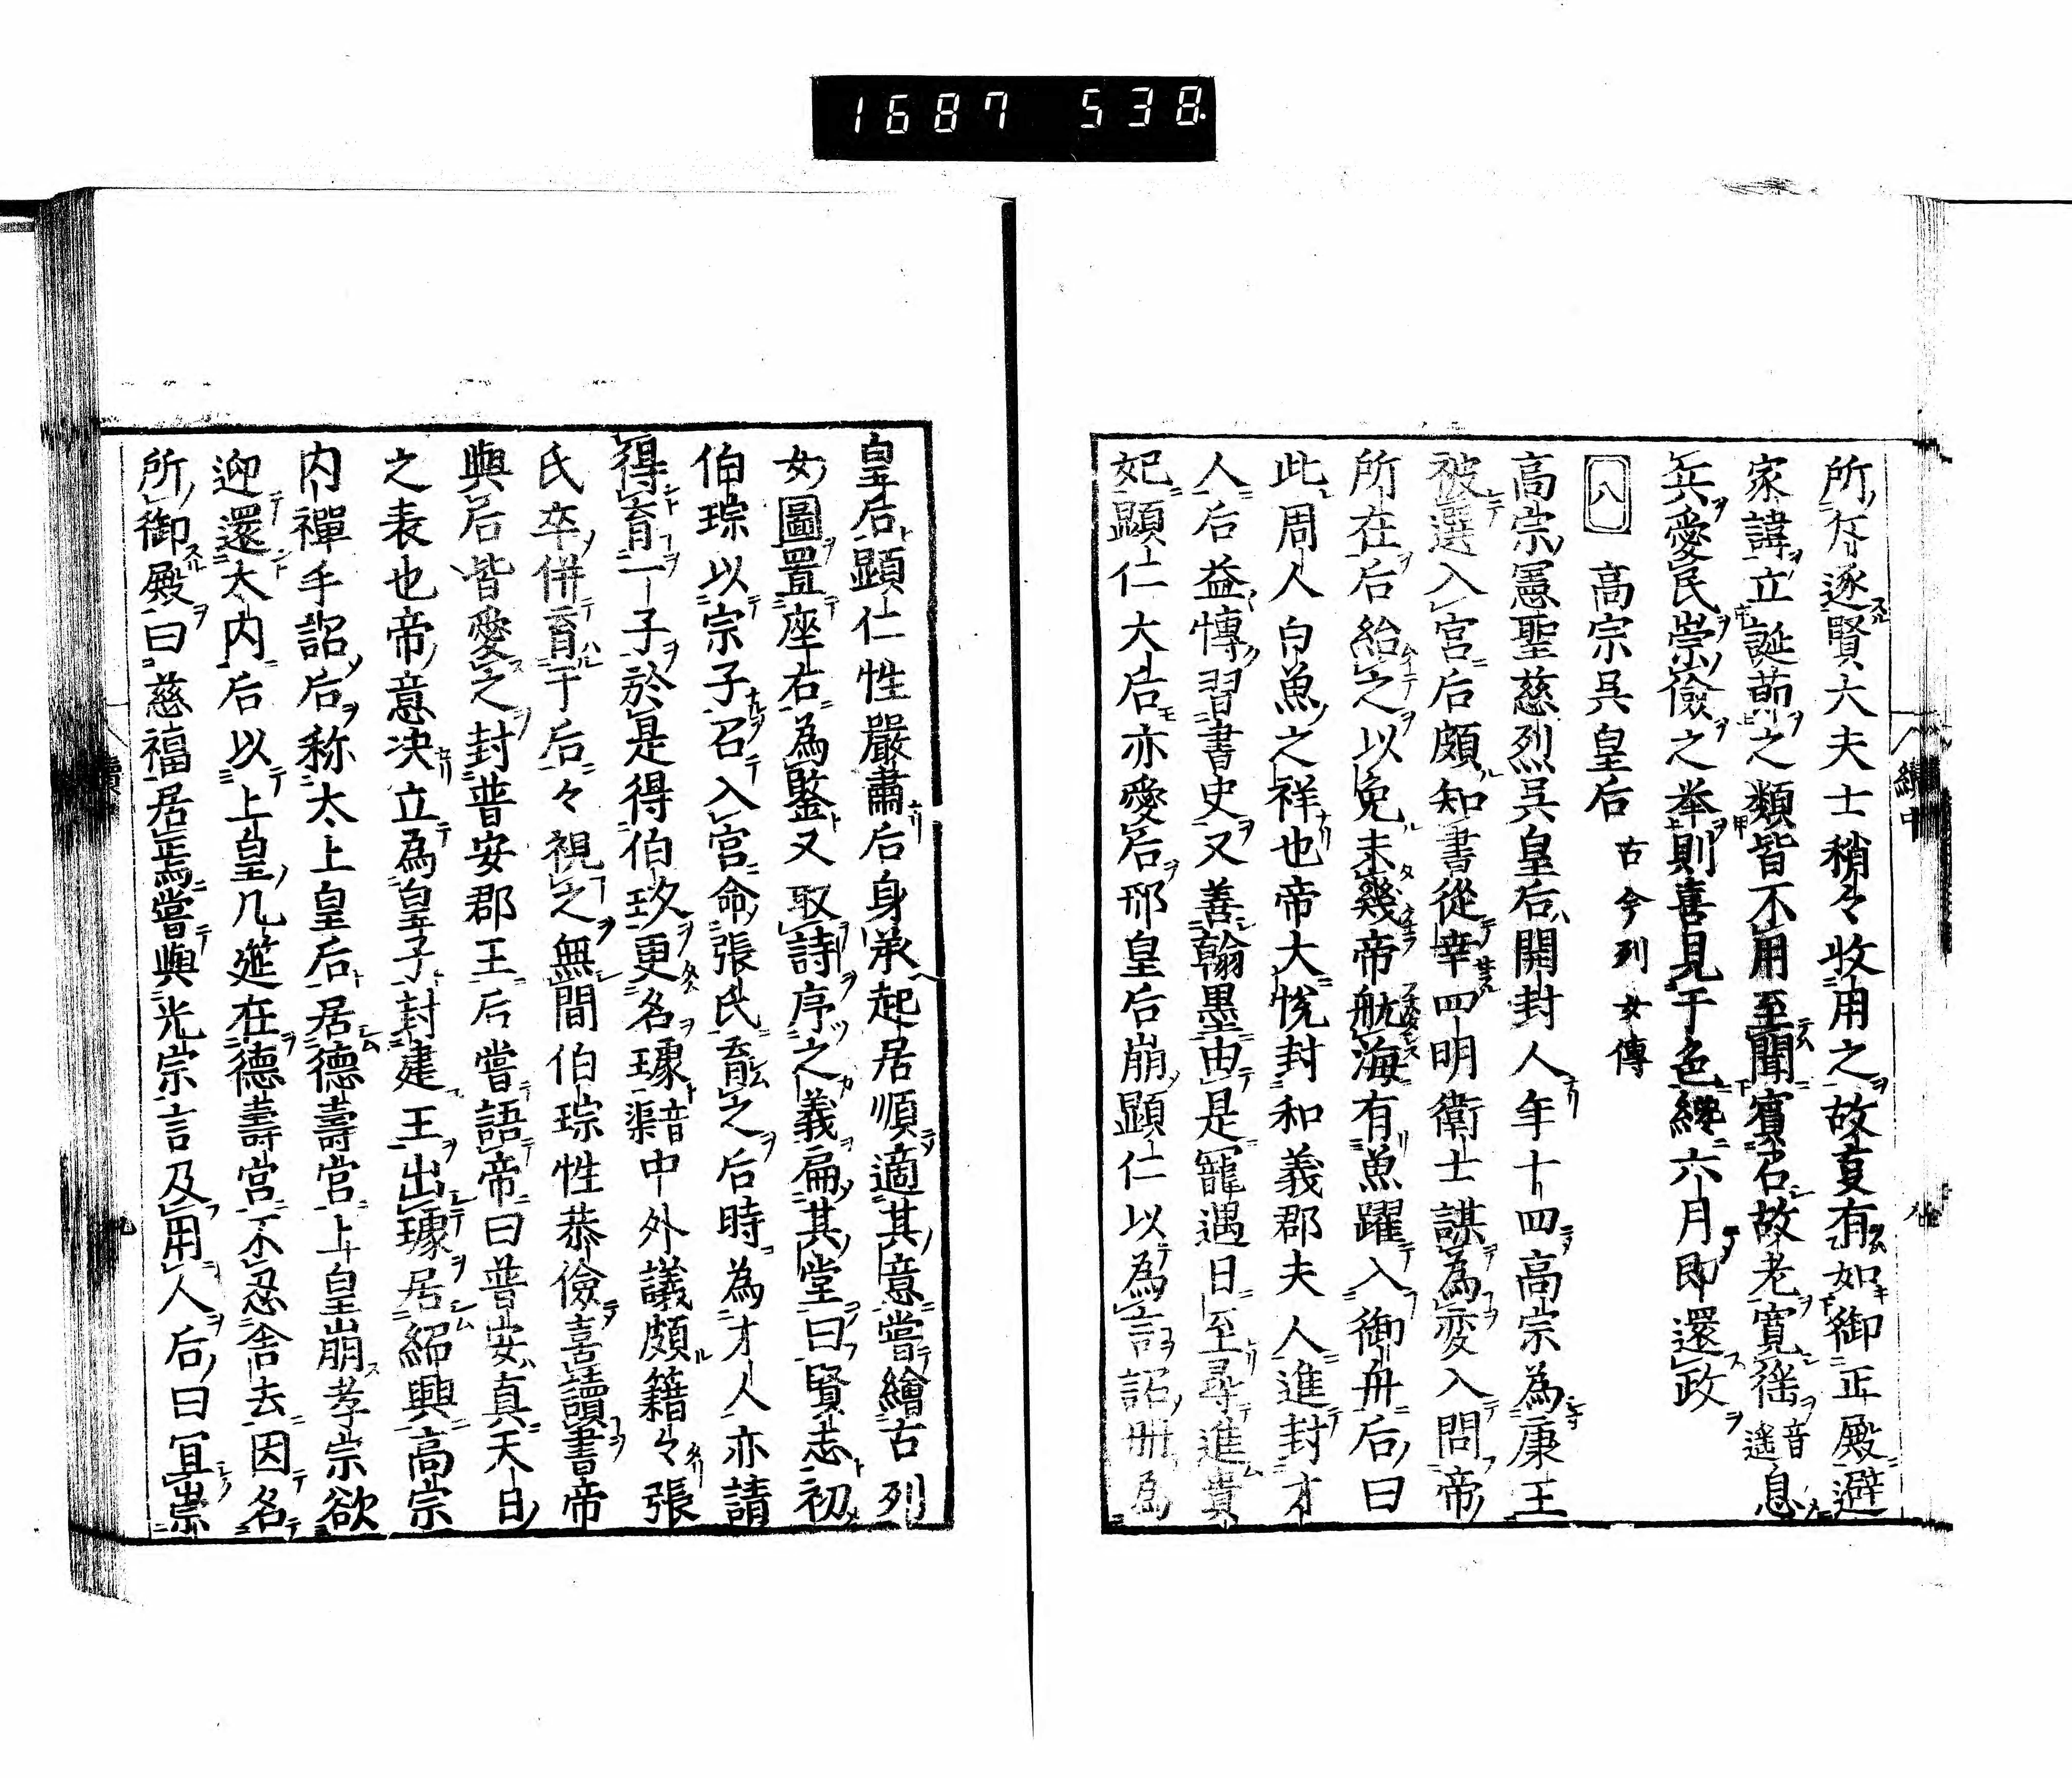 1687 538.
所斥逐賢大夫士稍々收用之故事有如御正殿避
家諱立誕莭之類皆不用至聞賓召故老寬徭音遙息
兵愛民崇儉之举則喜見于色纔六月即還政
八 高宗呉皇后 古今列女傳
高宗憲聖慈烈呉皇后開封人年十四高宗為康王
被選入宮后頗知書從幸四明衛士謀為変入問帝
所在后紿之以免未幾帝航海有魚躍入御舟后曰
此周人白魚之祥也帝大悅封和義郡夫人進封才
人后益慱習書史又善翰墨由是寵遇日至尋進貴
妃顕仁大后亦愛后邢皇后崩顕仁以為言詔册為
皇后顕仁性嚴肅后身承起居順適其意嘗繪古列
女圖置座右為鑒又取詩序之義扁其堂曰賢志初
伯琮以宗子召入宮命張氏育之后時為才人亦請
得育一子於是得伯玖更名璩音渠中外議頗籍々張
氏卒併育于后々視之無間伯琮性恭儉喜讀書帝
與后皆愛之封普安郡王后嘗語帝曰普安真天日
之表也帝意决立為皇子封建王出璩居紹興高宗
内禪手詔后称太上皇后居德壽宮上皇崩孝宗欲
迎還大内后以上皇几筵在德壽宮不忍舍去因名
所御殿曰慈福居焉嘗與光宗言及用人后曰冝崇